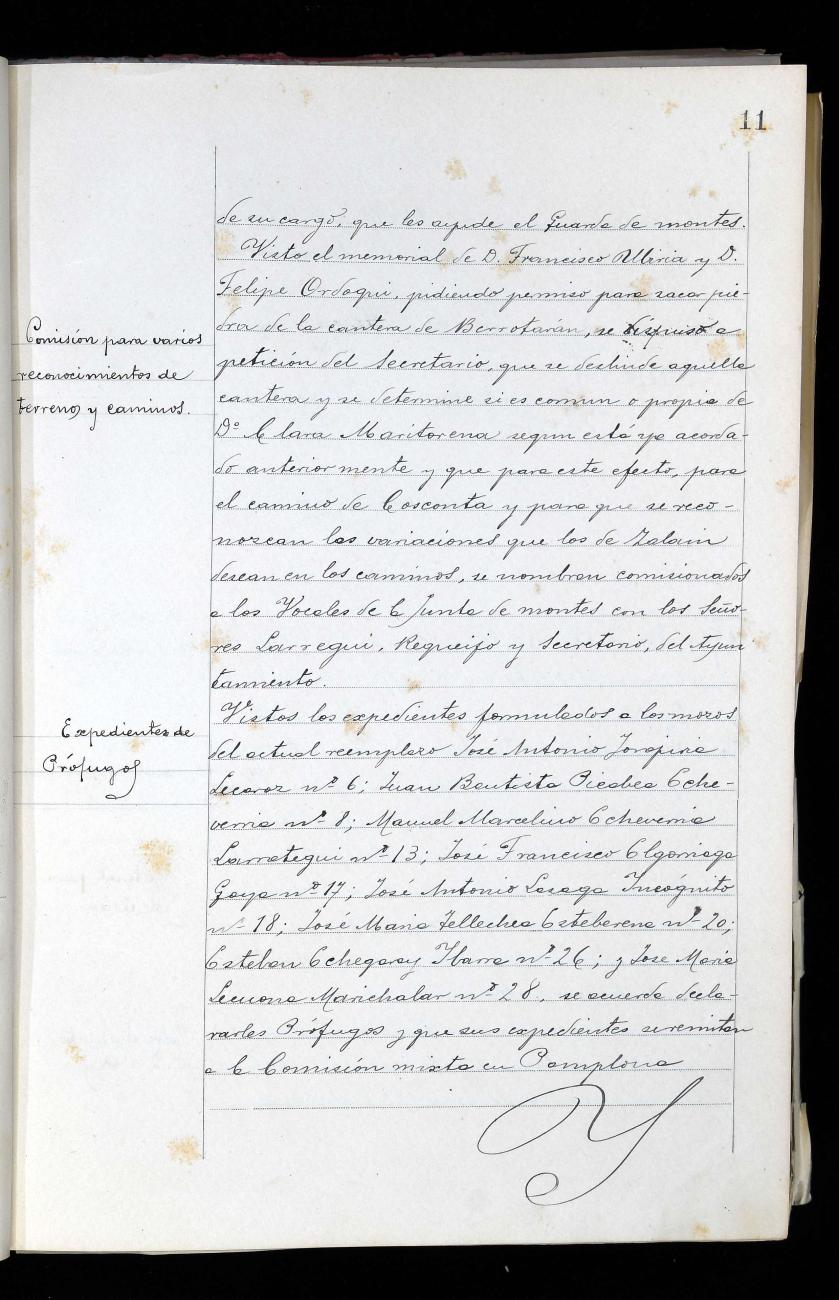 11
de su cargo, que les ayude el Guarda de montes.
Visto el memorial de D. Francisco Miria y D.
Felipe Ordoqui, pidiendo permiso para sacar pie-
dra de la cantera de Berrotarán, se dispuso a
petición del Secretario, que se deslinde aquella
cantera y se determine si es comun o propia de
Dª Clara Maritorena segun está ya acorda-
do anteriormente y que para este efecto, para
el camino de Cosconta y para que se reco-
nozcan las variaciones que los de Zalain
desean en los caminos, se nombran comisionados
a los Vocales de la Junta de montes con los Seño-
res Larregui, Requeijo y Secretario, del Ayun
tamiento.
Comisión para varios
reconocimientos de
terrenos y caminos.
Vistos los expedientes formulados a los mozos
del actual reemplazo José Antonio
Lecaroz nº 6; Juan Bautista Picabea Eche-
verria nº 8; Manuel Marcelino Echeverria
Larrategui nº 13; José Francisco Elgorriaga
Goya nº 17; José Antonio Lasaga Incógnito
nº 18; José Maria Tellechea Esteberena nº 20;
Esteban Echegaray Ibarra nº 26; y Jose Maria
Lecuona Marichalar nº 28, se acuerda decla-
rarles Prófugos y que sus expedientes se remitan
a la Comisión mixta en Pamplona
Expedientes de
Prófugos